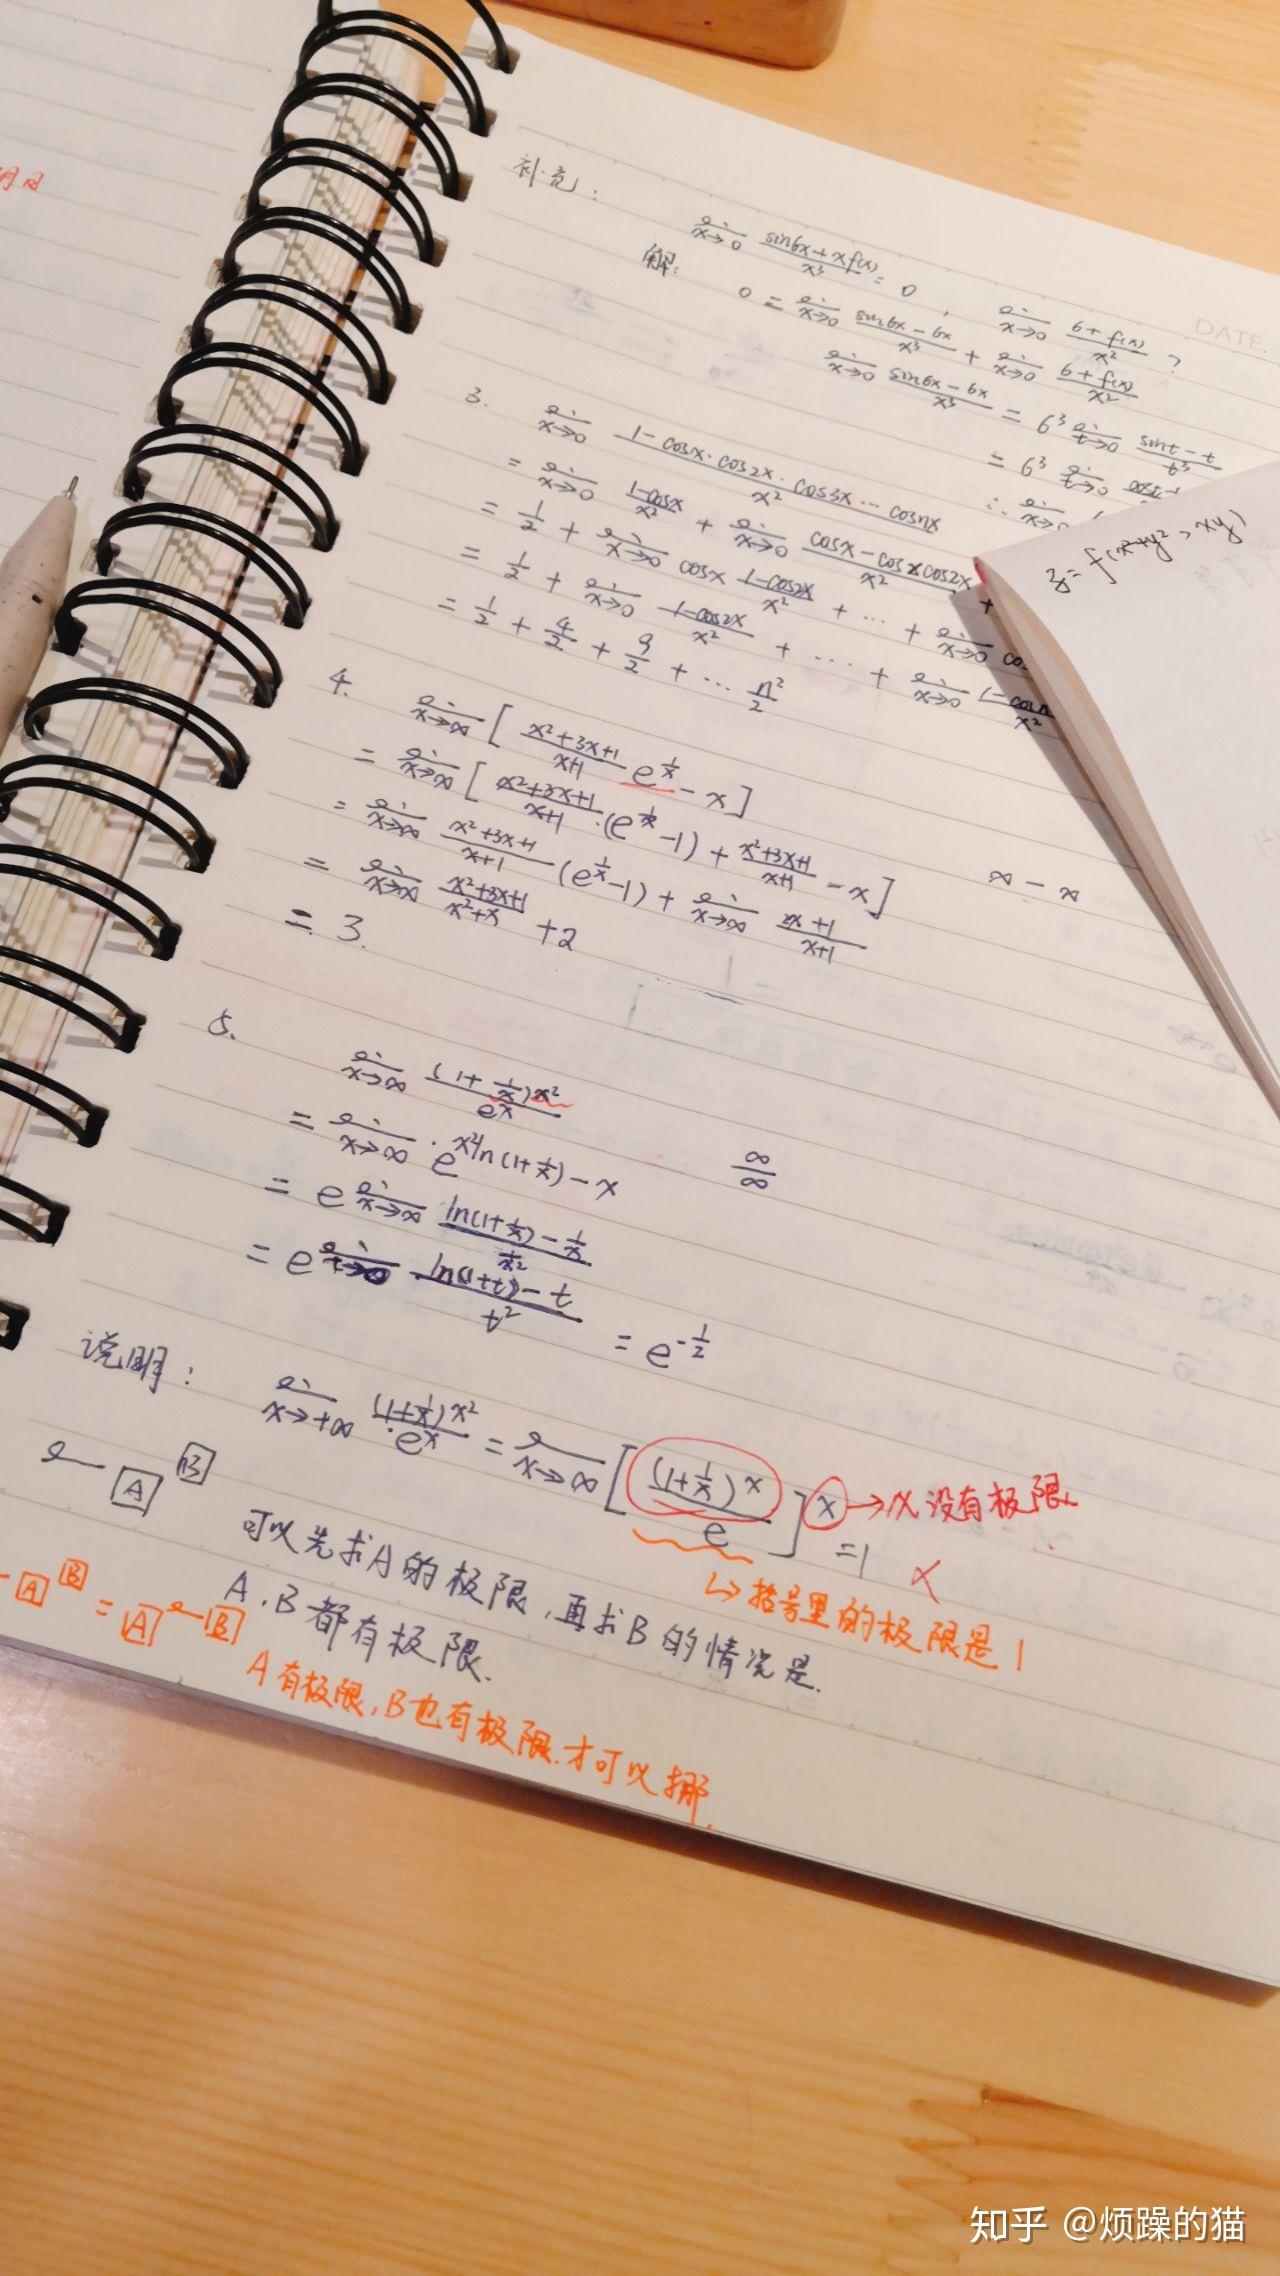 补充：
lim x→0 (sin6x+xf(x))/x³ = 0 , lim x→0 (6+f(x))/x² ?
解: 0 = lim x→0 (sin6x-6x)/x³ + lim x→0 (6+f(x))/x²
lim x→0 (sin6x-6x)/x³ = 6³ lim t→0 (sint-t)/t³
= 6³ lim t→0 cost-1
∴ lim x→0
DATE.
z=f(x²+y²,xy)
3. lim x→0 (1-cosx·cos2x·cos3x…cosnx)/x²
= lim x→0 (1-cosx)/x² + lim x→0 (cosx-cosxcos2x)/x² +
= 1/2 + lim x→0 cosx (1-cos2x)/x² + … + lim x→0 co
= 1/2 + lim x→0 (1-cos2x)/x² + … + lim x→0 (1-cosn)/x²
= 1/2 + 4/2 + 9/2 + … n²/2
4. lim x→∞ [ (x²+3x+1)/(x+1) e^(1/x) - x ]
= lim x→∞ [ (x²+3x+1)/(x+1) ·(e^(1/x)-1) + (x²+3x+1)/(x+1) - x ] ∞-∞
= lim x→∞ (x²+3x+1)/(x+1) (e^(1/x)-1) + lim x→∞ (2x+1)/(x+1)
= lim x→∞ (x²+3x+1)/(x²+x) +2
= 3.
5. lim x→∞ (1+1/x)^x²/e^x
= lim x→∞ e^(x²ln(1+1/x)-x) ∞/∞
= e^(lim x→∞ (ln(1+1/x)-1/x)/(1/x²))
= e^(lim t→0 (ln(1+t)-t)/t²) = e^(-1/2)
说明：
lim x→+∞ (1+1/x)^x²/e^x = lim x→∞ [ (1+1/x)^x/e ]^x =1 ✗
→x没有极限
↳括号里的极限是1
lim A^B
可以先求A的极限,再求B的情况是.
A.B都有极限.
A^B = A^lim B
A有极限,B也有极限.才可以挪.
知乎 @烦躁的猫